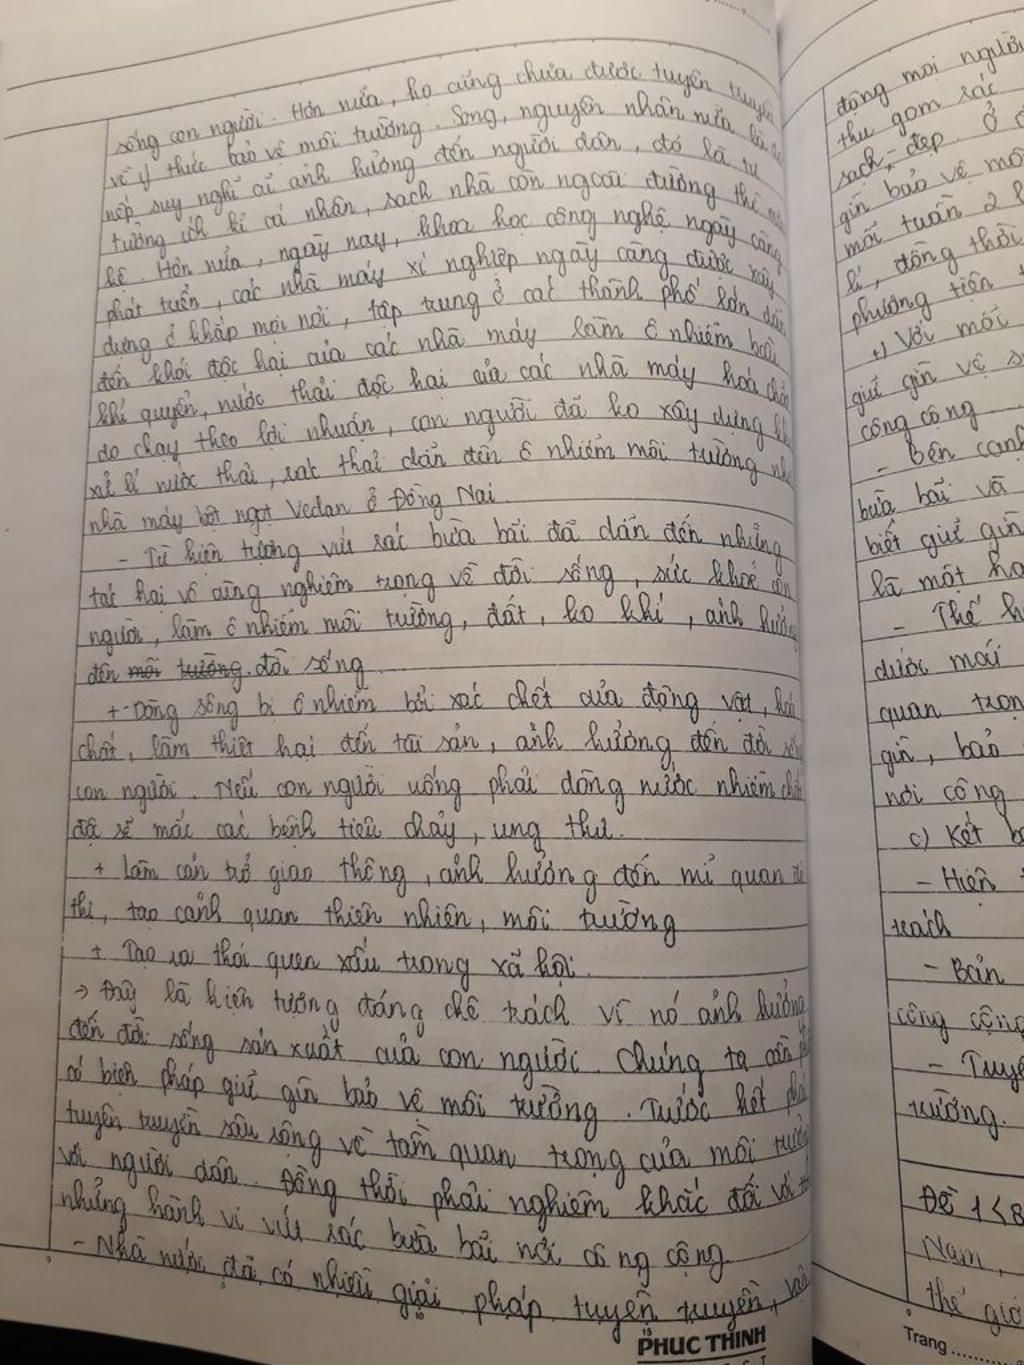 sống con người. Hơn nữa, họ cũng chưa được tuyên truyền
về ý thức bảo vệ môi trường. Song, nguyên nhân nữa là do
nếp suy nghĩ ai ảnh hưởng đến người dân, đó là tư
tưởng ích kỉ cá nhân, sạch nhà còn ngoài đường thì mặc
kệ. Hơn nữa, ngày nay, khoa học công nghệ ngày càng
phát triển, các nhà máy xí nghiệp ngày càng được xây
dựng ở khắp mọi nơi, tập trung ở các thành phố lớn dẫn
đến khói độc hại của các nhà máy làm ô nhiễm bầu
khí quyển, nước thải độc hại của các nhà máy hoá chất
do chạy theo lợi nhuận, con người đã ko xây dựng
xử lí nước thải, rác thải dẫn đến ô nhiễm môi trường như
nhà máy bột ngọt Vedan ở Đồng Nai.
- Từ hiện tượng vứt rác bừa bãi đã dẫn đến những
tác hại vô cùng nghiêm trọng về đời sống, sức khoẻ con
người, làm ô nhiễm môi trường, đất, ko khí, ảnh hưởng
đến môi trường đời sống
+ Dòng sông bị ô nhiễm bởi xác chết của động vật, hoá
chất, làm thiệt hại đến tài sản, ảnh hưởng đến đời sống
con người. Nếu con người uống phải dòng nước nhiễm chất
độc sẽ mắc các bệnh tiêu chảy, ung thư.
+ Làm cản trở giao thông, ảnh hưởng đến mĩ quan đô
thị, tạo cảnh quan thiên nhiên, môi trường
+ Tạo ra thói quen xấu trong xã hội.
→ Đây là hiện tượng đáng chê trách vì nó ảnh hưởng
đến đời sống sản xuất của con người. Chúng ta cần phải
có biện pháp giữ gìn bảo vệ môi trường. Trước hết phải
tuyên truyền sâu rộng về tầm quan trọng của môi trường
với người dân. Đồng thời phải nghiêm khắc đối với
những hành vi vứt rác bừa bãi nơi công cộng
- Nhà nước đã có nhiều giải pháp tuyên truyền, vận
PHUC THINH
động mọi người
thu gom rác
sạch, đẹp. Ở
gìn bảo vệ môi
mỗi tuần 2
lí, đồng thời
phương tiện
+) Với mỗi
giữ gìn vệ s
công cộng
- Bên cạnh
bừa bãi và
biết giữ gìn
là một
- Thế
dưới mái
quan trọn
gìn, bảo
nơi công
c) Kết b
- Hiện
trách
- Bản
công cộng
- Tuyê
trường.
Đề 1
Nam,
thế giớ
Trang